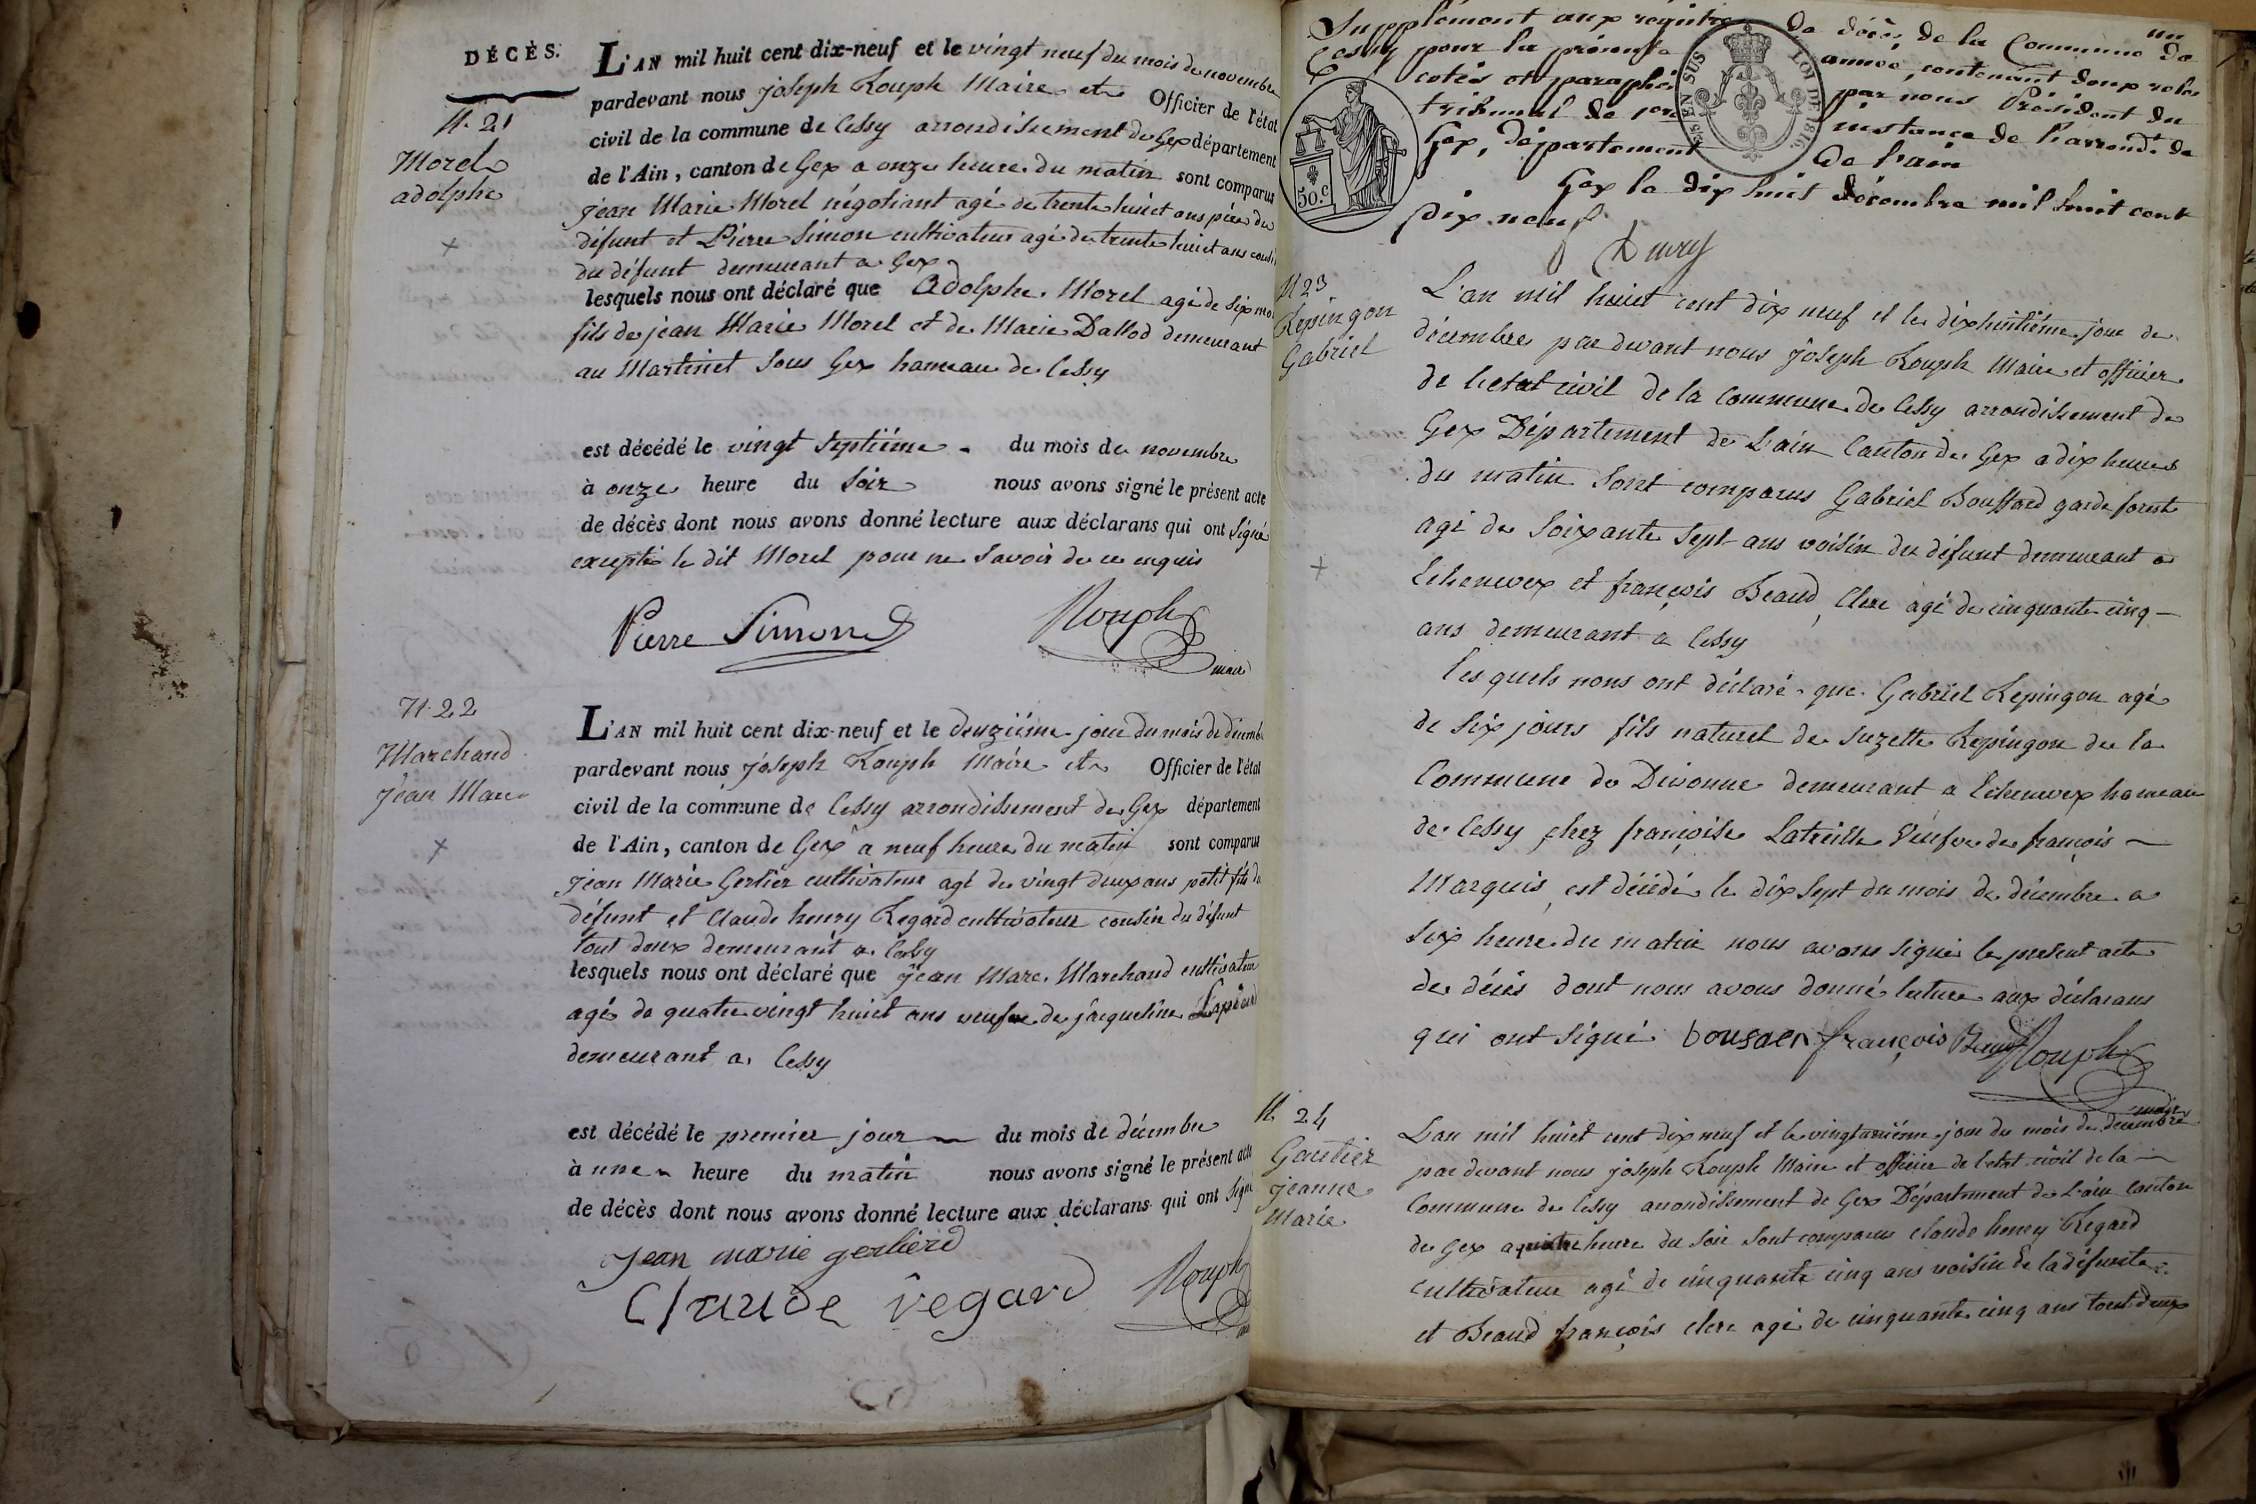 DÉCÈS.
N. 21
Morel
adolphe
L'AN mil huit cent dix-neuf et le vingt neuf du mois de novembre
pardevant nous joseph Rouph Maire et Officier de l'état
civil de la commune de Cessy arrondissement de Gex département
de l'Ain, canton de Gex a onze heure du matin sont comparus
jean Marie Morel négotiant agé de trente huict ans père du
défunt et Pierre Simon cultivateur agé de trente huict ans
du défunt demeurant a Gex
lesquels nous ont déclaré que Adolphe Morel agé de six
fils de jean Marie Morel et de Marie Dallod demeurant
au Martinet sous Gex hameau de Cessy
est décédé le vingt septiéme du mois de novembre
à onze heure du soir nous avons signé le présent acte
de décès dont nous avons donné lecture aux déclarans qui ont signé
excepté le dit Morel pour ne savoir de ce enquis
Pierre Simond Rouph
maire
N. 22
Marchand
Jean Marc
L'AN mil huit cent dix-neuf et le deuziéme jour du mois de décemb
pardevant nous joseph Rouph Maire et Officier de l'état
civil de la commune de Cessy arrondissement de Gex département
de l'Ain, canton de Gex à neuf heure du matin sont comparus
jean Marie Gerlier cultivateur agé de vingt deux ans petit fils du
défunt et Claude henry Regard cultivateur cousin du défunt
tout deux demeurant a Cessy
lesquels nous ont déclaré que jean Marc Marchand cultivateur
agé de quatre vingt huict ans veufve de jacqueline
demeurant a Cessy
est décédé le premier jour du mois de décembre
à une heure du matin nous avons signé le présent acte
de décès dont nous avons donné lecture aux déclarans qui ont signé
jean marie gerlierd
Claude regard Rouph
Supplément aux régistres de décès de la Commune de
Cessy pour la présente année, contenant deux roles
cotés et paraphés par nous Président du
tribunal de pre instance de l'arrondt. de
Gex, département de l'ain
Gex le dix huit décembre mil huit cent
dix neuf
un
EN SUS
LOI DE 1816
50.c
N 23
Repingon
Gabriel
L'an mil huict cent dix neuf et le dixhuitiéme jour de
décembre par devant nous joseph Rouph Maire et officier
de l'etat civil de la Commune de Cessy arrondissement de
Gex Département de L'ain Canton de Gex a dix heures
du matin sont comparus Gabriel Bouffard garde forest
agé de soixante sept ans voisin du défunt demeurant a
Echenevex et françois Beaud, Clerc agé de cinquante cinq
ans demeurant a Cessy
lesquels nous ont déclaré que Gabriel Repingon agé
de six jours fils naturel de Suzette Repingon de la
Commune de Divonne demeurant a Echenevex hameau
de Cessy chez françoise Latreille Veufve de françois
Marquis, est décédé le dix sept du mois de décembre a
six heure du matin nous avons signé le présent acte
de décès dont nous avons donné lecture aux déclarans
qui ont signé françois Beaud Rouph
maire
N. 24
Gautier
jeanne
Marie
L'an mil huict cent dix neuf et le jour du mois de décembre
par devant nous joseph Rouph Maire et officier de l'etat civil de la
Commune de Cessy arrondissement de Gex Département de L'ain Canton
de Gex a quatre heure du soir sont comparus claude henry Regard
cultivateur agé de cinquante cinq ans voisin de la défunte
et Beaud françois clerc agé de cinquante cinq ans tout deux